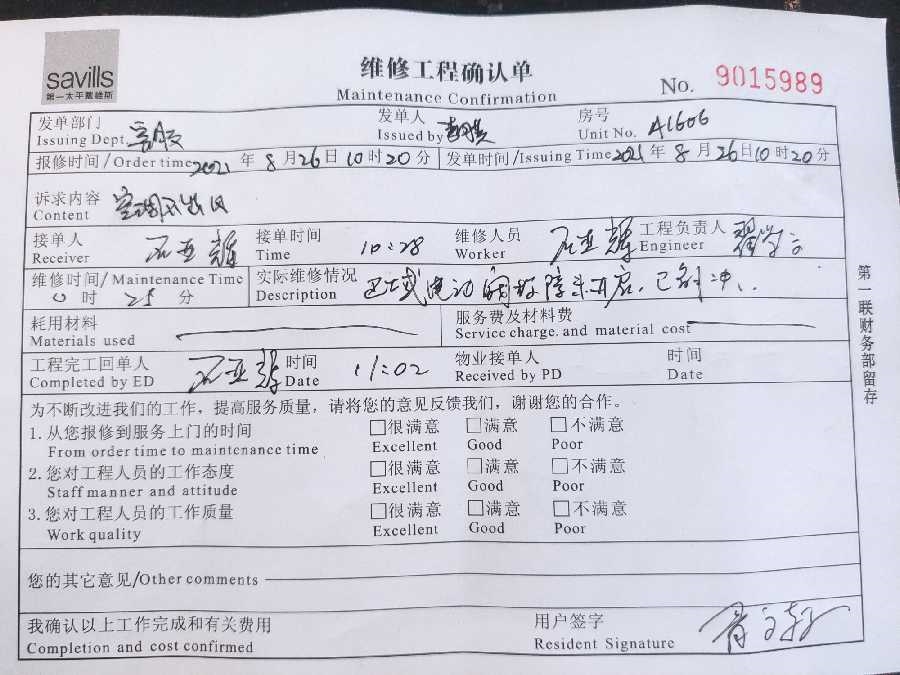 savills
第一太平戴维斯
维修工程确认单
Maintenance Confirmation
No. 9015989
发单部门 发单人 房号
Issuing Dept. 客服 Issued by Unit No. A1606
报修时间/Order time 2021 年 8 月 26 日 10 时 20 分 发单时间/Issuing Time 2021 年 8 月 26 日 10 时 20 分
诉求内容
Content 空调不出风
接单人 接单时间 维修人员 工程负责人
Receiver 石亚辉 Time 10:28 Worker 石亚辉 Engineer
维修时间/Maintenance Time 实际维修情况
时 25 分 Description 电动阀故障未开启，已
耗用材料 服务费及材料费
Materials used Service charge. and material cost
工程完工回单人 时间 物业接单人 时间
Completed by ED 石亚辉 Date 11:02 Received by PD Date
为不断改进我们的工作，提高服务质量，请将您的意见反馈我们，谢谢您的合作。
1.从您报修到服务上门的时间 □很满意 □满意 □不满意
From order time to maintenance time Excellent Good Poor
2.您对工程人员的工作态度 □很满意 □满意 □不满意
Staff manner and attitude Excellent Good Poor
3.您对工程人员的工作质量 □很满意 □满意 □不满意
Work quality Excellent Good Poor
您的其它意见/Other comments
我确认以上工作完成和有关费用 用户签字
Completion and cost confirmed Resident Signature
第一联财务部留存